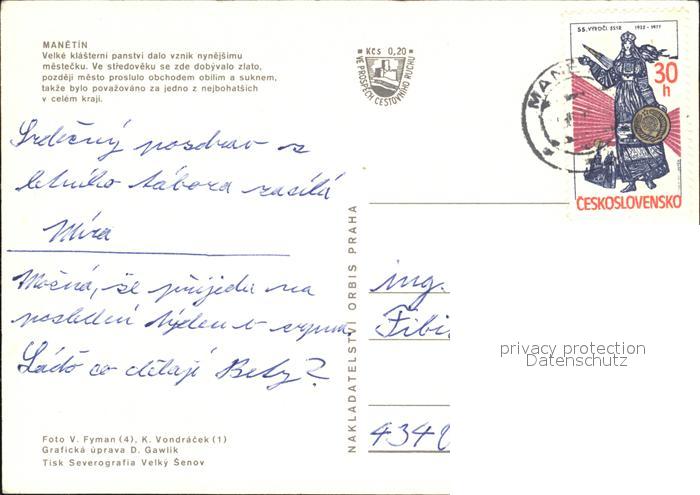 MANĚTÍN
Velké klášterní panství dalo vznik nynějšímu
městečku. Ve středověku se zde dobývalo zlato,
později město proslulo obchodem obilím a suknem,
takže bylo považováno za jedno z nejbohatších
v celém kraji.
Kčs 0,20
VE PROSPĚCH CESTOVNÍHO RUCHU
55. VÝROČÍ SSSR 1922 - 1977
30 h
ČESKOSLOVENSKO
MANĚ
Srdečný pozdrav z
letního tábora zasílá
Míra
Možná, že přijedu na
poslední týden v srpnu,
Láďo co dělají Beky?
NAKLADATELSTVÍ ORBIS PRAHA
ing.
Fibi
434
privacy protection
Datenschutz
Foto V. Fyman (4), K. Vondráček (1)
Grafická úprava D. Gawlik
Tisk Severografia Velký Šenov